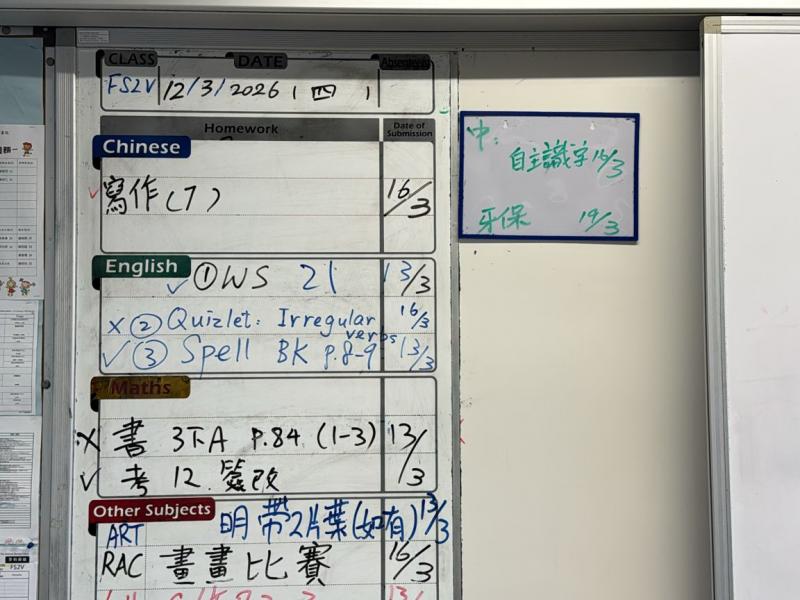 CLASS DATE
FS2V 12/3/2026 (四)
Homework Date of Submission
Chinese
寫作(7) 16/3
English
✓ ① WS 21 13/3
x ② Quizlet: Irregular verbs 16/3
✓ ③ Spell BK p.8-9 13/3
Maths
x 書 3下A P.84 (1-3) 13/3
✓ 考 12 簽改
Other Subjects
ART 明帶2片葉(如有) 13/3
RAC 畫畫比賽 16/3
中:
自主識字 16/3
牙保 19/3
FS2V